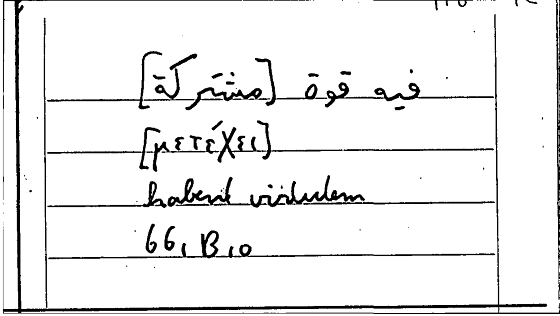 فيه قوة [مشتركة]
[μετέχει]
habent virtutem
66, B, 0